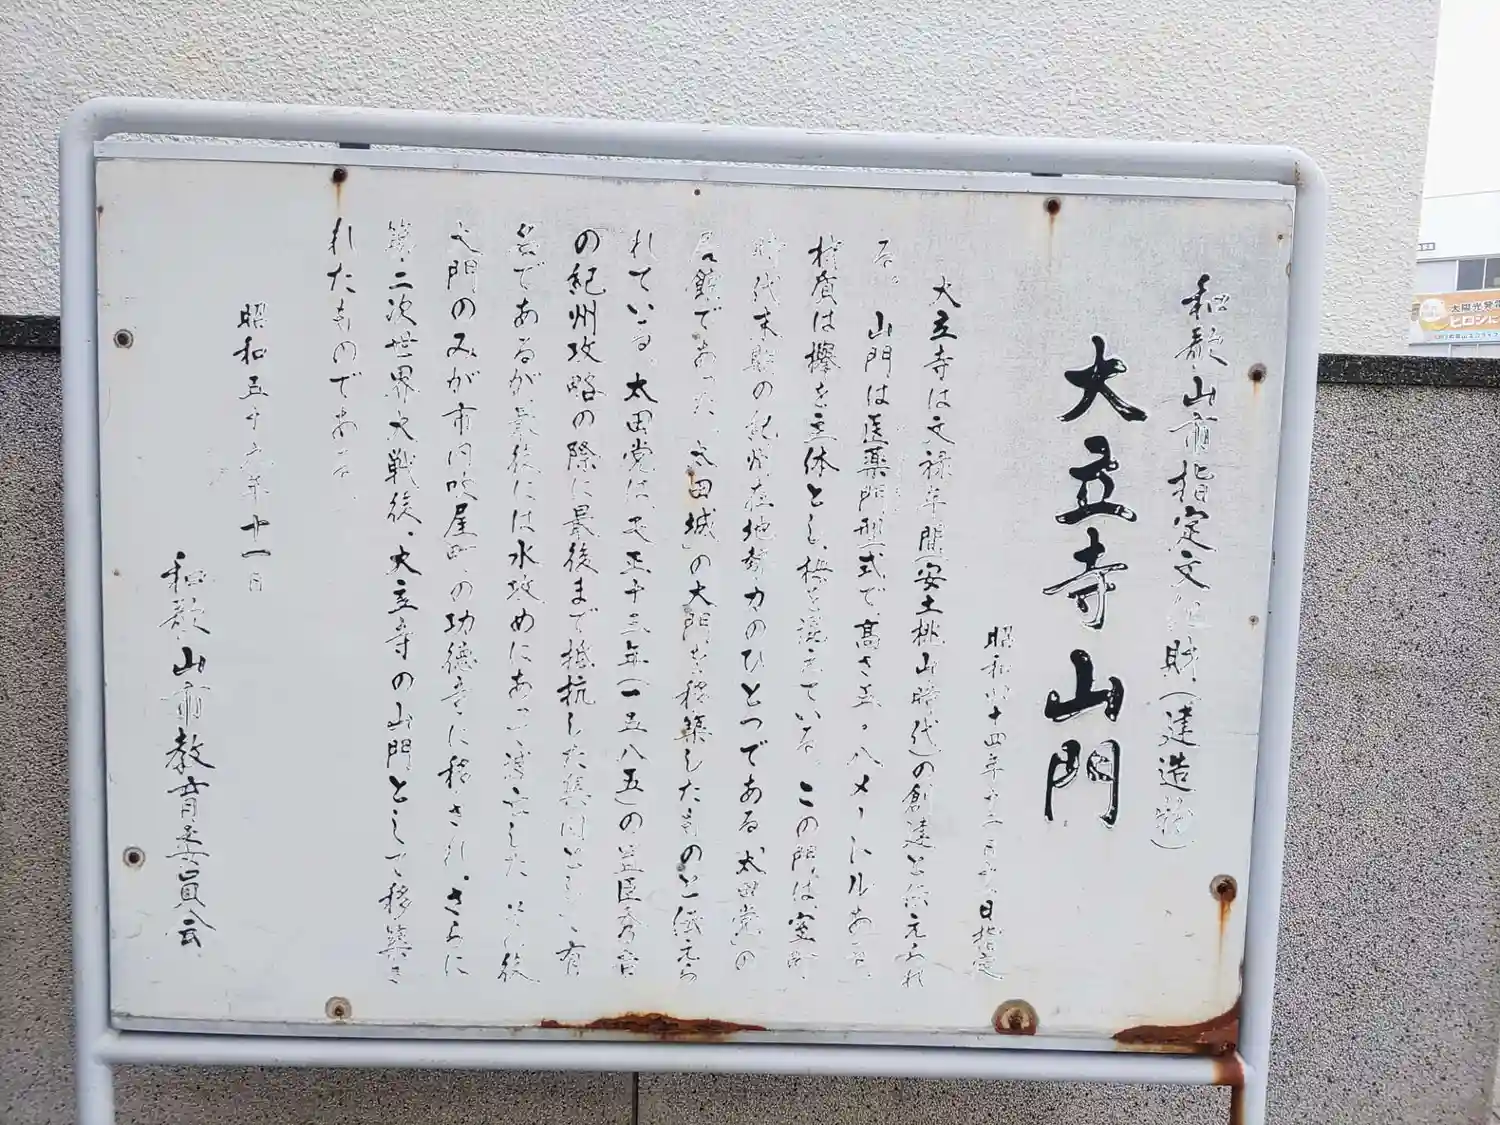 和歌山市指定文化財(建造物)
大立寺山門
昭和四十四年十二月十六日指定
大立寺は文禄年間(安土桃山時代)の創建と伝えられ
る。山門は医薬門型式で高さ五。八メートルある。
材質は欅を主体とし、様を混えている。この門は室町
時代末期の紀州在地勢力のひとつである「太田党」の
居館であった「太田城」の大門を移築したものと伝えら
れている。太田党は、天正十三年(一五八五)の豊臣秀吉
の紀州攻略の際に最後まで抵抗した集団として有
名であるが最後には水攻めにあって滅亡した。その後
大門のみが市内吹屋町の功徳寺に移され、さらに
第二次世界大戦後、大立寺の山門として移築さ
れたものである。
昭和五十六年十一月
和歌山市教育委員会
太陽光発電
ヒロシに